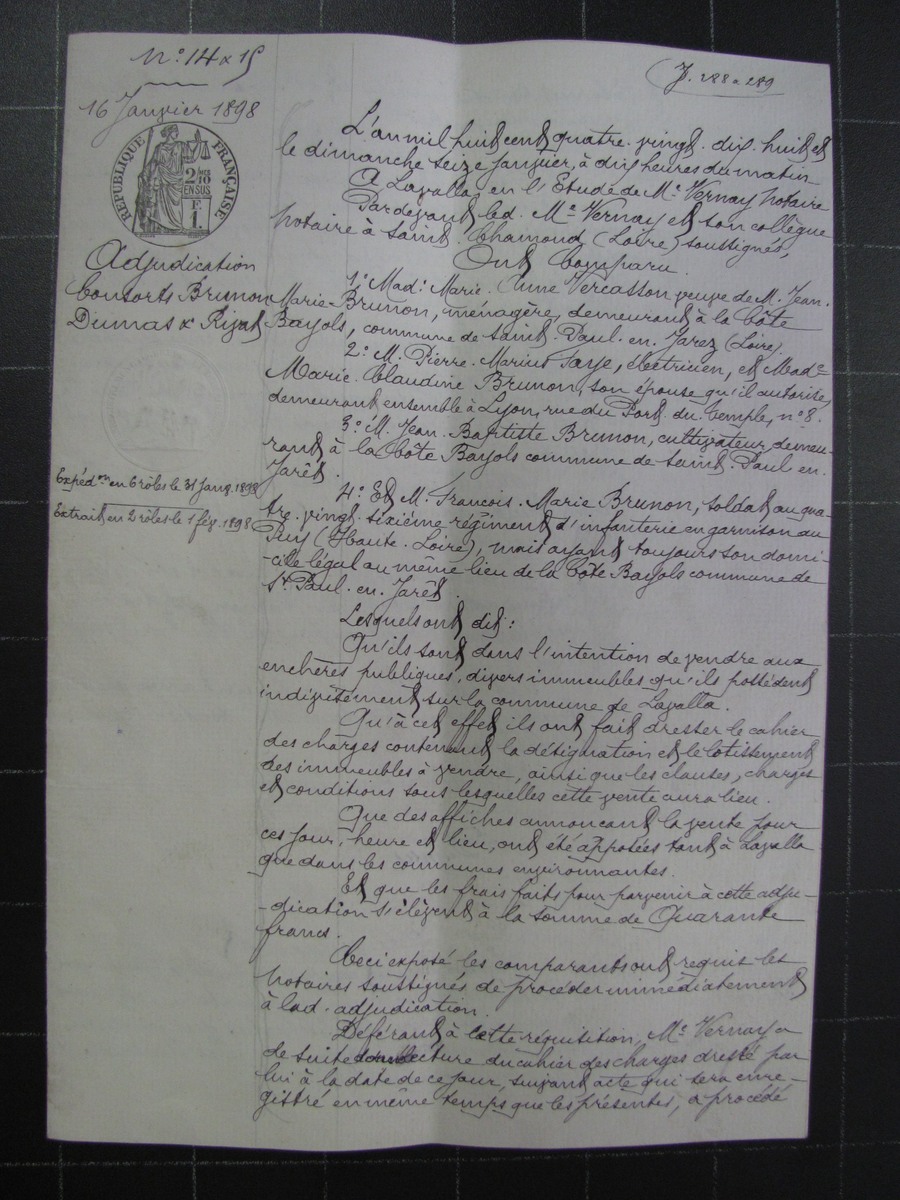 N.° 14 & 15
J. 288 a 289
16 Janvier 1898
RÉPUBLIQUE FRANÇAISE
2/10 EN SUS
F. 1.
Adjudication
Consorts Brunon
Dumas & Rivat
Expéd.on en 6 rôles le 31 janv. 1898
Extrait en 2 rôles le 1 fév. 1898
L'an mil huit cent quatre-vingt-dix-huit et
le dimanche seize janvier, à dix heures du matin
A Lavalla, en l'Etude de Me Vernay notaire
Pardevant led. Me Vernay et son collègue
notaire à Saint-Chamond (Loire) soussignés,
Ont Comparu.
1.° Mad.e Marie-Anne Vercasson veuve de M. Jean-
Marie Brunon, ménagère, demeurant à la Côte
Bayols, commune de Saint-Paul-en-Jarez (Loire).
2.° M. Pierre-Marius Faye, électricien, et Made
Marie-Claudine Brunon, son épouse qu'il autorise,
demeurant ensemble à Lyon, rue du Port-du-Temple, n° 8.
3.° M. Jean-Baptiste Brunon, cultivateur, demeu-
rant à la Côte Bayols commune de Saint-Paul-en-
Jarêt.
4.° Et M. François-Marie Brunon, soldat au qua-
tre-vingt-sixième régiment d'infanterie en garnison au
Puy (Haute-Loire), mais ayant toujours son domi-
-cile légal au même lieu de la Côte Bayols commune de
St Paul-en-Jarêt.
Lesquels ont dit :
Qu'ils sont dans l'intention de vendre aux
enchères publiques, divers immeubles qu'ils possèdent
indivisément sur la commune de Lavalla.
Qu'à cet effet ils ont fait dresser le cahier
des charges contenant la désignation et le lotissement
des immeubles à vendre, ainsi que les clauses, charges
et conditions sous lesquelles cette vente aura lieu.
Que des affiches annonçant la vente pour
ces jour, heure et lieu, ont été apposées tant à Lavalla
que dans les communes environnantes.
Et que les frais faits pour parvenir à cette adju-
-dication s'élèvent à la somme de Quarante
francs.
Ceci exposé les comparants ont requis les
notaires soussignés de procéder immédiatement
à lad. adjudication.
Déférant à cette réquisition, Me Vernay a
de suite lecture du cahier des charges dressé par
lui à la date de ce jour, suivant acte qui sera enre-
gistré en même temps que les présentes, a procédé